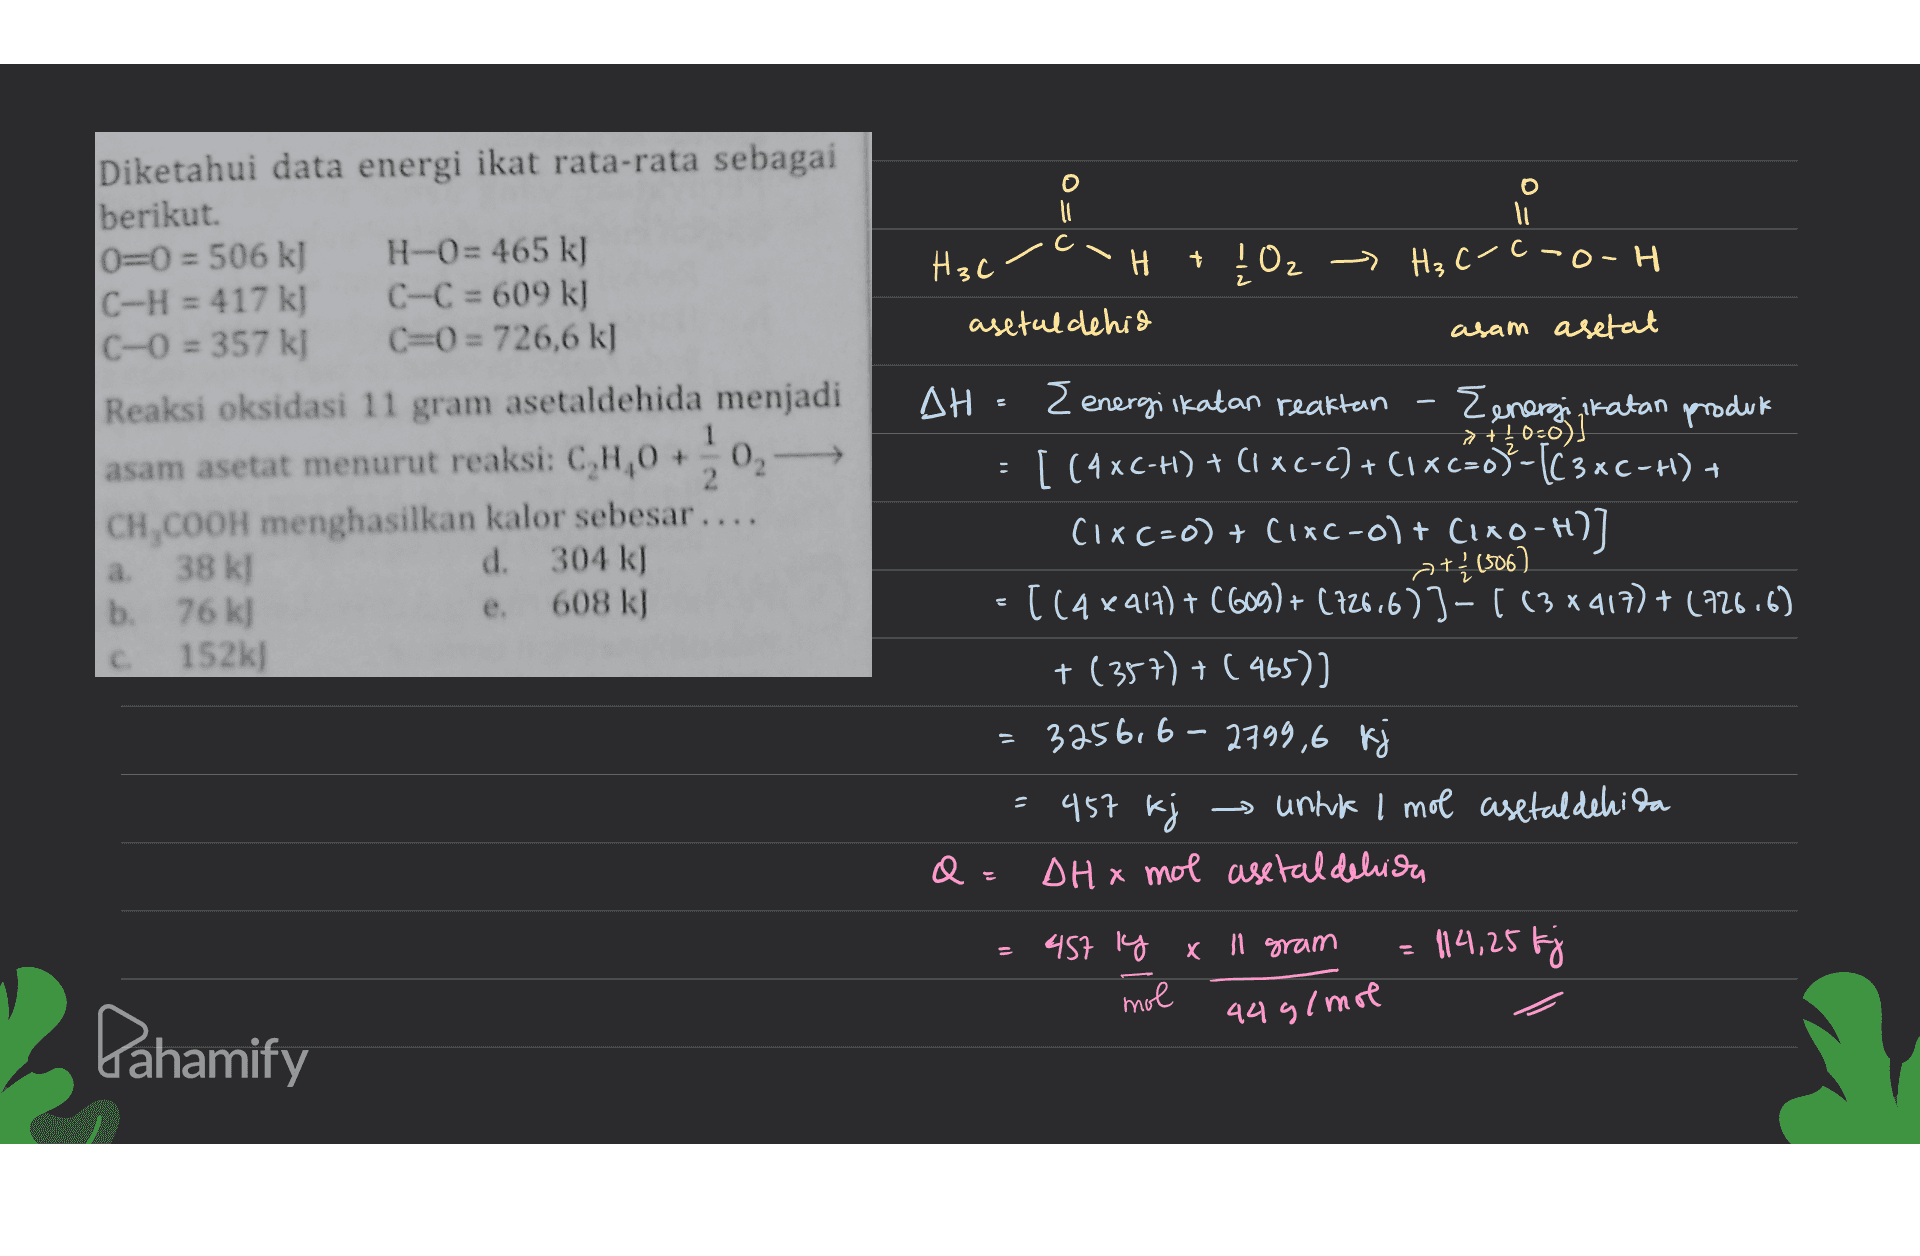 Diketahui data energi ikat rata-rata sebagai
berikut.
O=O = 506 kJ H—O= 465 kJ
C—H = 417 kJ C—C = 609 kJ
C—O = 357 kJ C=O = 726,6 kJ
Reaksi oksidasi 11 gram asetaldehida menjadi
asam asetat menurut reaksi: C₂H₄O + 1/2 O₂ ⟶
CH₃COOH menghasilkan kalor sebesar ....
a. 38 kJ d. 304 kJ
b. 76 kJ e. 608 kJ
c. 152kJ
O O
|| ||
H₃C C H + 1/2 O₂ → H₃C C - O - H
asetaldehid asam asetat
ΔH = Σ energi ikatan reaktan - Σ energi ikatan produk
→ + 1/2 O=O)]
= [ (4 x C-H) + (1 x C-C) + (1 x C=O) - [(3 x C-H) +
(1 x C=O) + (1 x C-O) + (1 x O-H)]
→ + 1/2 (506)
= [ (4 x 417) + (609) + (726,6) ] - [ (3 x 417) + (726,6)
+ (357) + (465)]
= 3256,6 - 2799,6 kj
= 457 kj → untuk 1 mol asetaldehida
Q = ΔH x mol asetaldehida
= 457 kj/mol x 11 gram / 44 g/mol = 114,25 kj
Pahamify